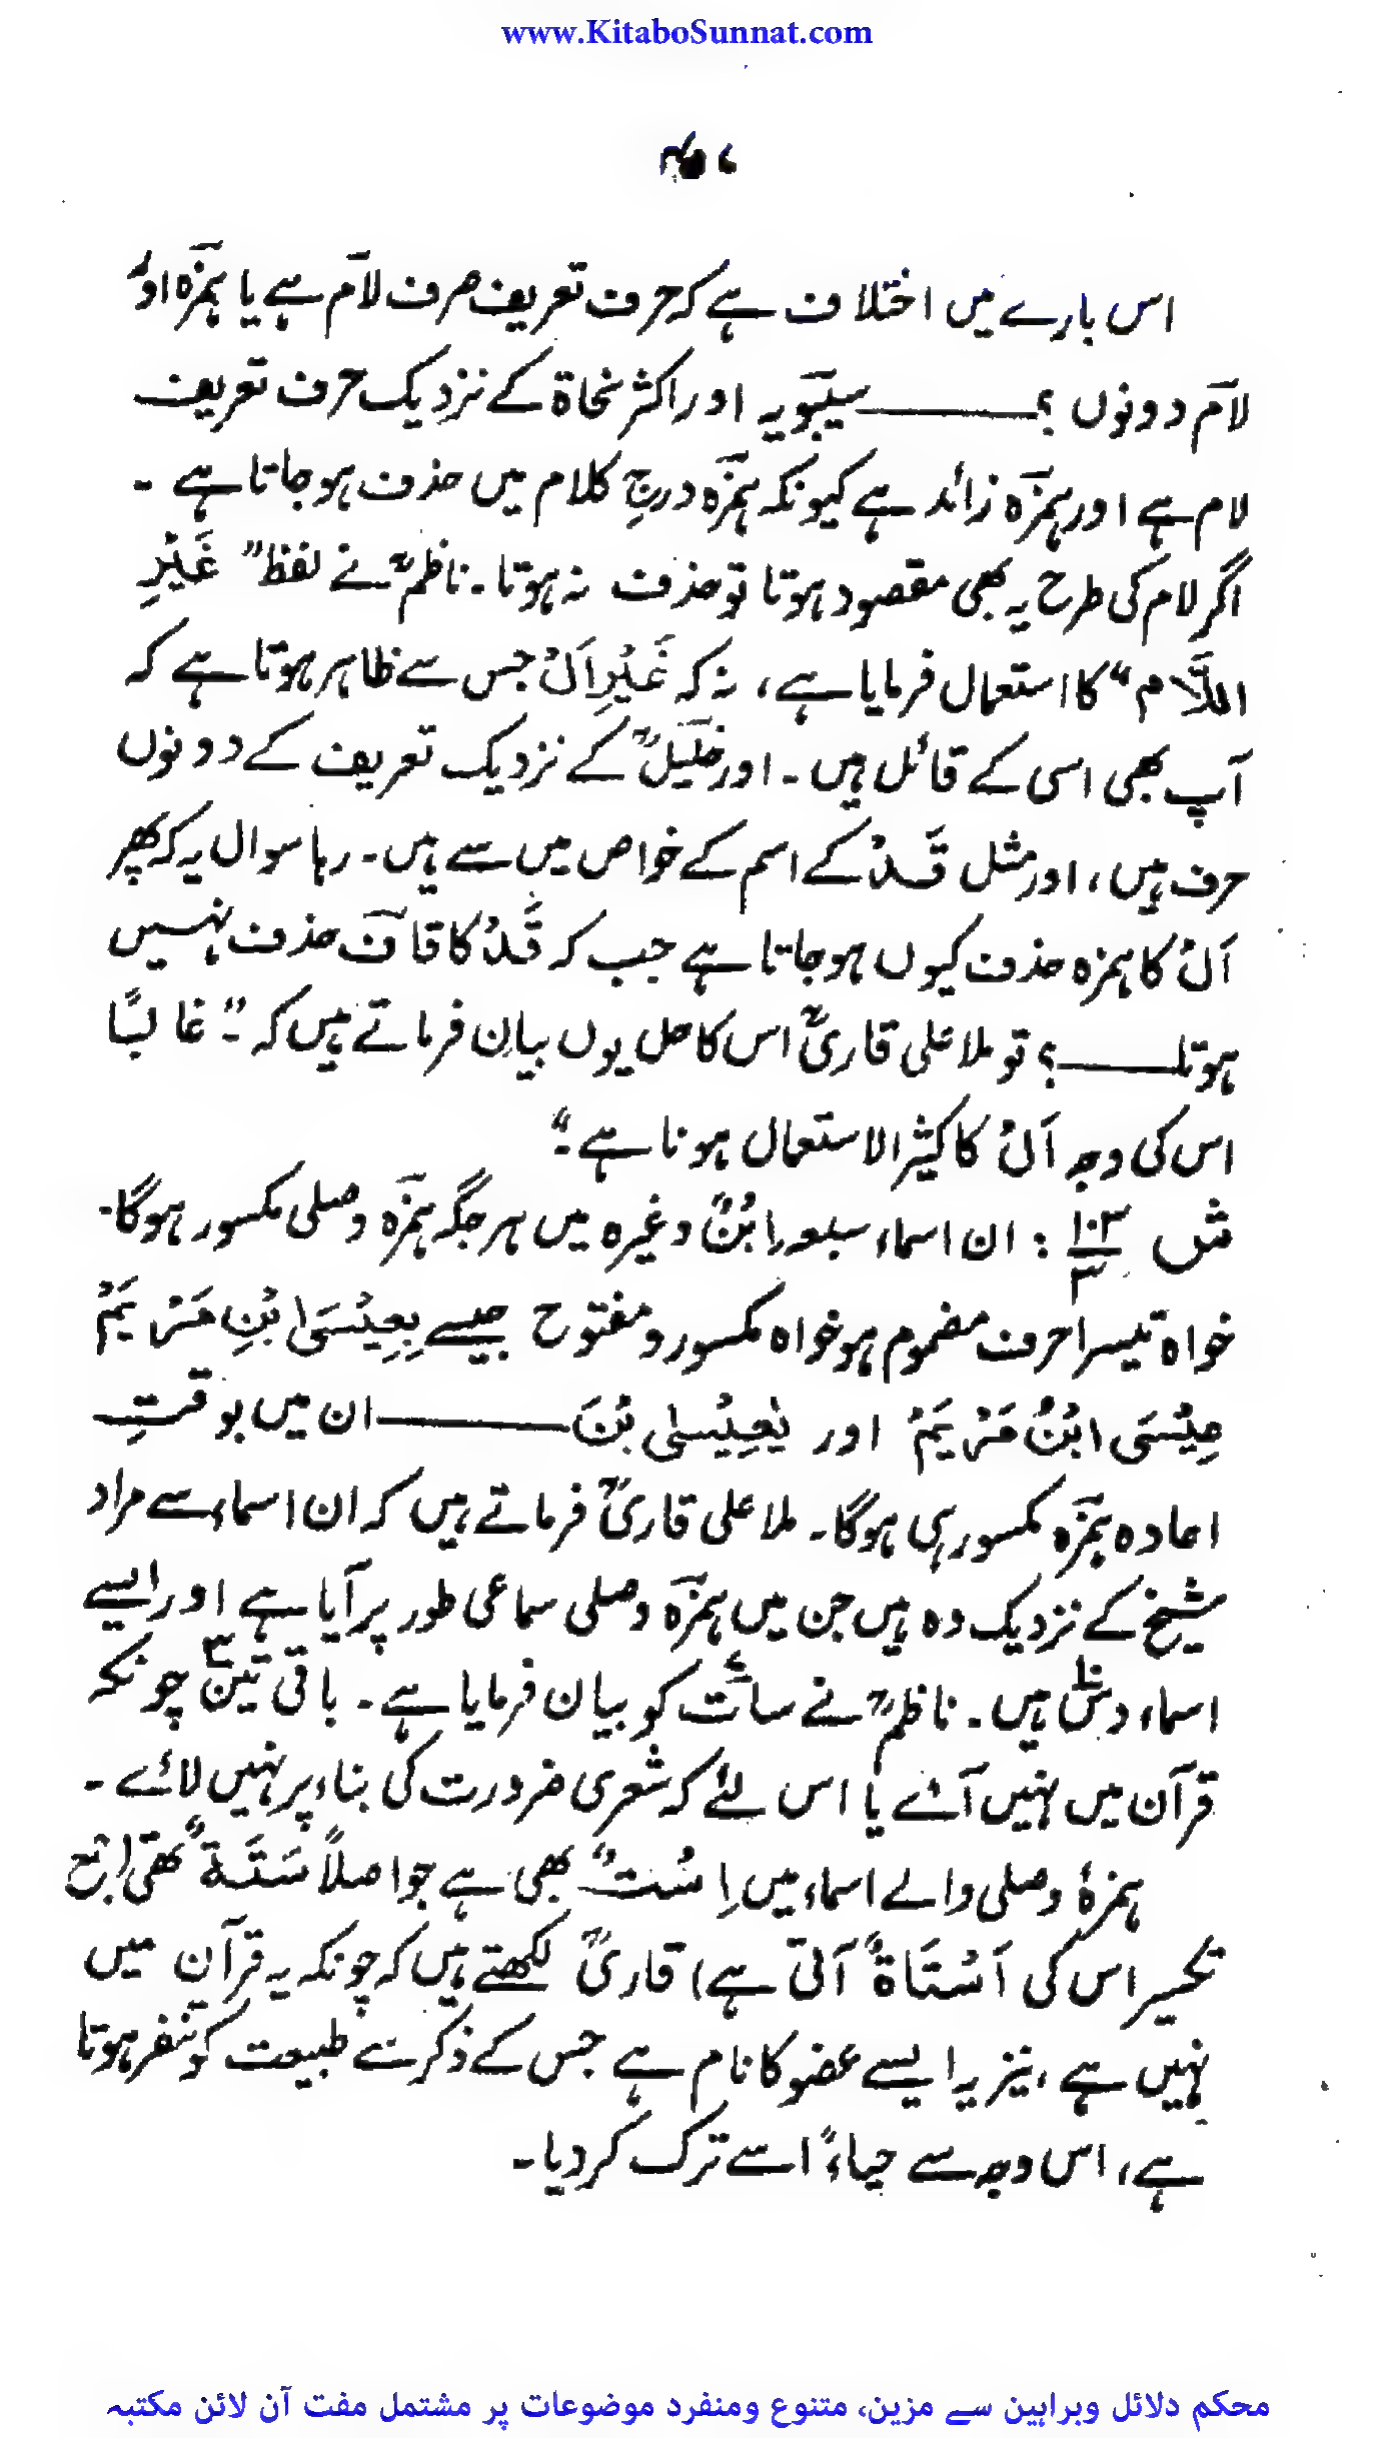 www.KitaboSunnat.com
اس بارے میں اختلاف ہے کہ حرف تعریف صرف لام ہے یا ہمزہ اور
لام دونوں ؟ ——— سیبویہ اور اکثر نحاۃ کے نزدیک حرف تعریف
لام ہے اور ہمزہ زائد ہے کیونکہ ہمزہ درجِ کلام میں حذف ہو جاتا ہے ۔
اگر لام کی طرح یہ بھی مقصود ہوتا تو حذف نہ ہوتا ۔ ناظمؒ نے لفظ " غَیْرِ
اللَّامِ " کا استعمال فرمایا ہے ، نہ کہ غَیْرِ اَلْ جس سے ظاہر ہوتا ہے کہ
آپ بھی اسی کے قائل ہیں ۔ اور خلیلؒ کے نزدیک تعریف کے دونوں
حرف ہیں ، اور مثل قَدْ کے اسم کے خواص میں سے ہیں ۔ رہا سوال یہ کہ پھر
اَلْ کا ہمزہ حذف کیوں ہو جاتا ہے جب کہ قَدْ کا قاف حذف نہیں
ہوتا ——— ؟ تو ملا علی قاریؒ اس کا حل یوں بیان فرماتے ہیں کہ :" غالبًا
اس کی وجہ اَلْ کا کثیر الاستعمال ہونا ہے ۔"
ش ۱۰۳/۳ : ان اسماء سبعہ اِبْنٌ وغیرہ میں ہر جگہ ہمزہ وصلی مکسور ہوگا ۔
خواہ تیسرا حرف مضموم ہو خواہ مکسور و مفتوح جیسے بِعِیْسَی ابْنِ مَرْیَمَ
عِیْسَی ابْنُ مَرْیَمَ اور یٰعِیْسٰی بْنَ ——— ان میں بوقتِ
اعادہ ہمزہ مکسور ہی ہوگا ۔ ملا علی قاریؒ فرماتے ہیں کہ ان اسماء سے مراد
شیخ کے نزدیک وہ ہیں جن میں ہمزہ وصلی سماعی طور پر آیا ہے اور ایسے
اسماء دس ہیں ۔ ناظمؒ نے سات کو بیان فرمایا ہے ۔ باقی تین چونکہ
قرآن میں نہیں آئے یا اس لئے کہ شعری ضرورت کی بناء پر نہیں لائے ۔
ہمزۂ وصلی والے اسماء میں اِسْتٌ بھی ہے جو اصلاً سَتَهٌ تھی (جمع
تکسیر اس کی اَسْتَاهٌ آتی ہے) قاریؒ لکھتے ہیں کہ چونکہ یہ قرآن میں
نہیں ہے ، نیز یہ ایسے عضو کا نام ہے جس کے ذکر سے طبیعت کو تنفر ہوتا
ہے ، اس وجہ سے حیاءً اسے ترک کر دیا ۔
محکم دلائل وبراہین سے مزین، متنوع ومنفرد موضوعات پر مشتمل مفت آن لائن مکتبہ